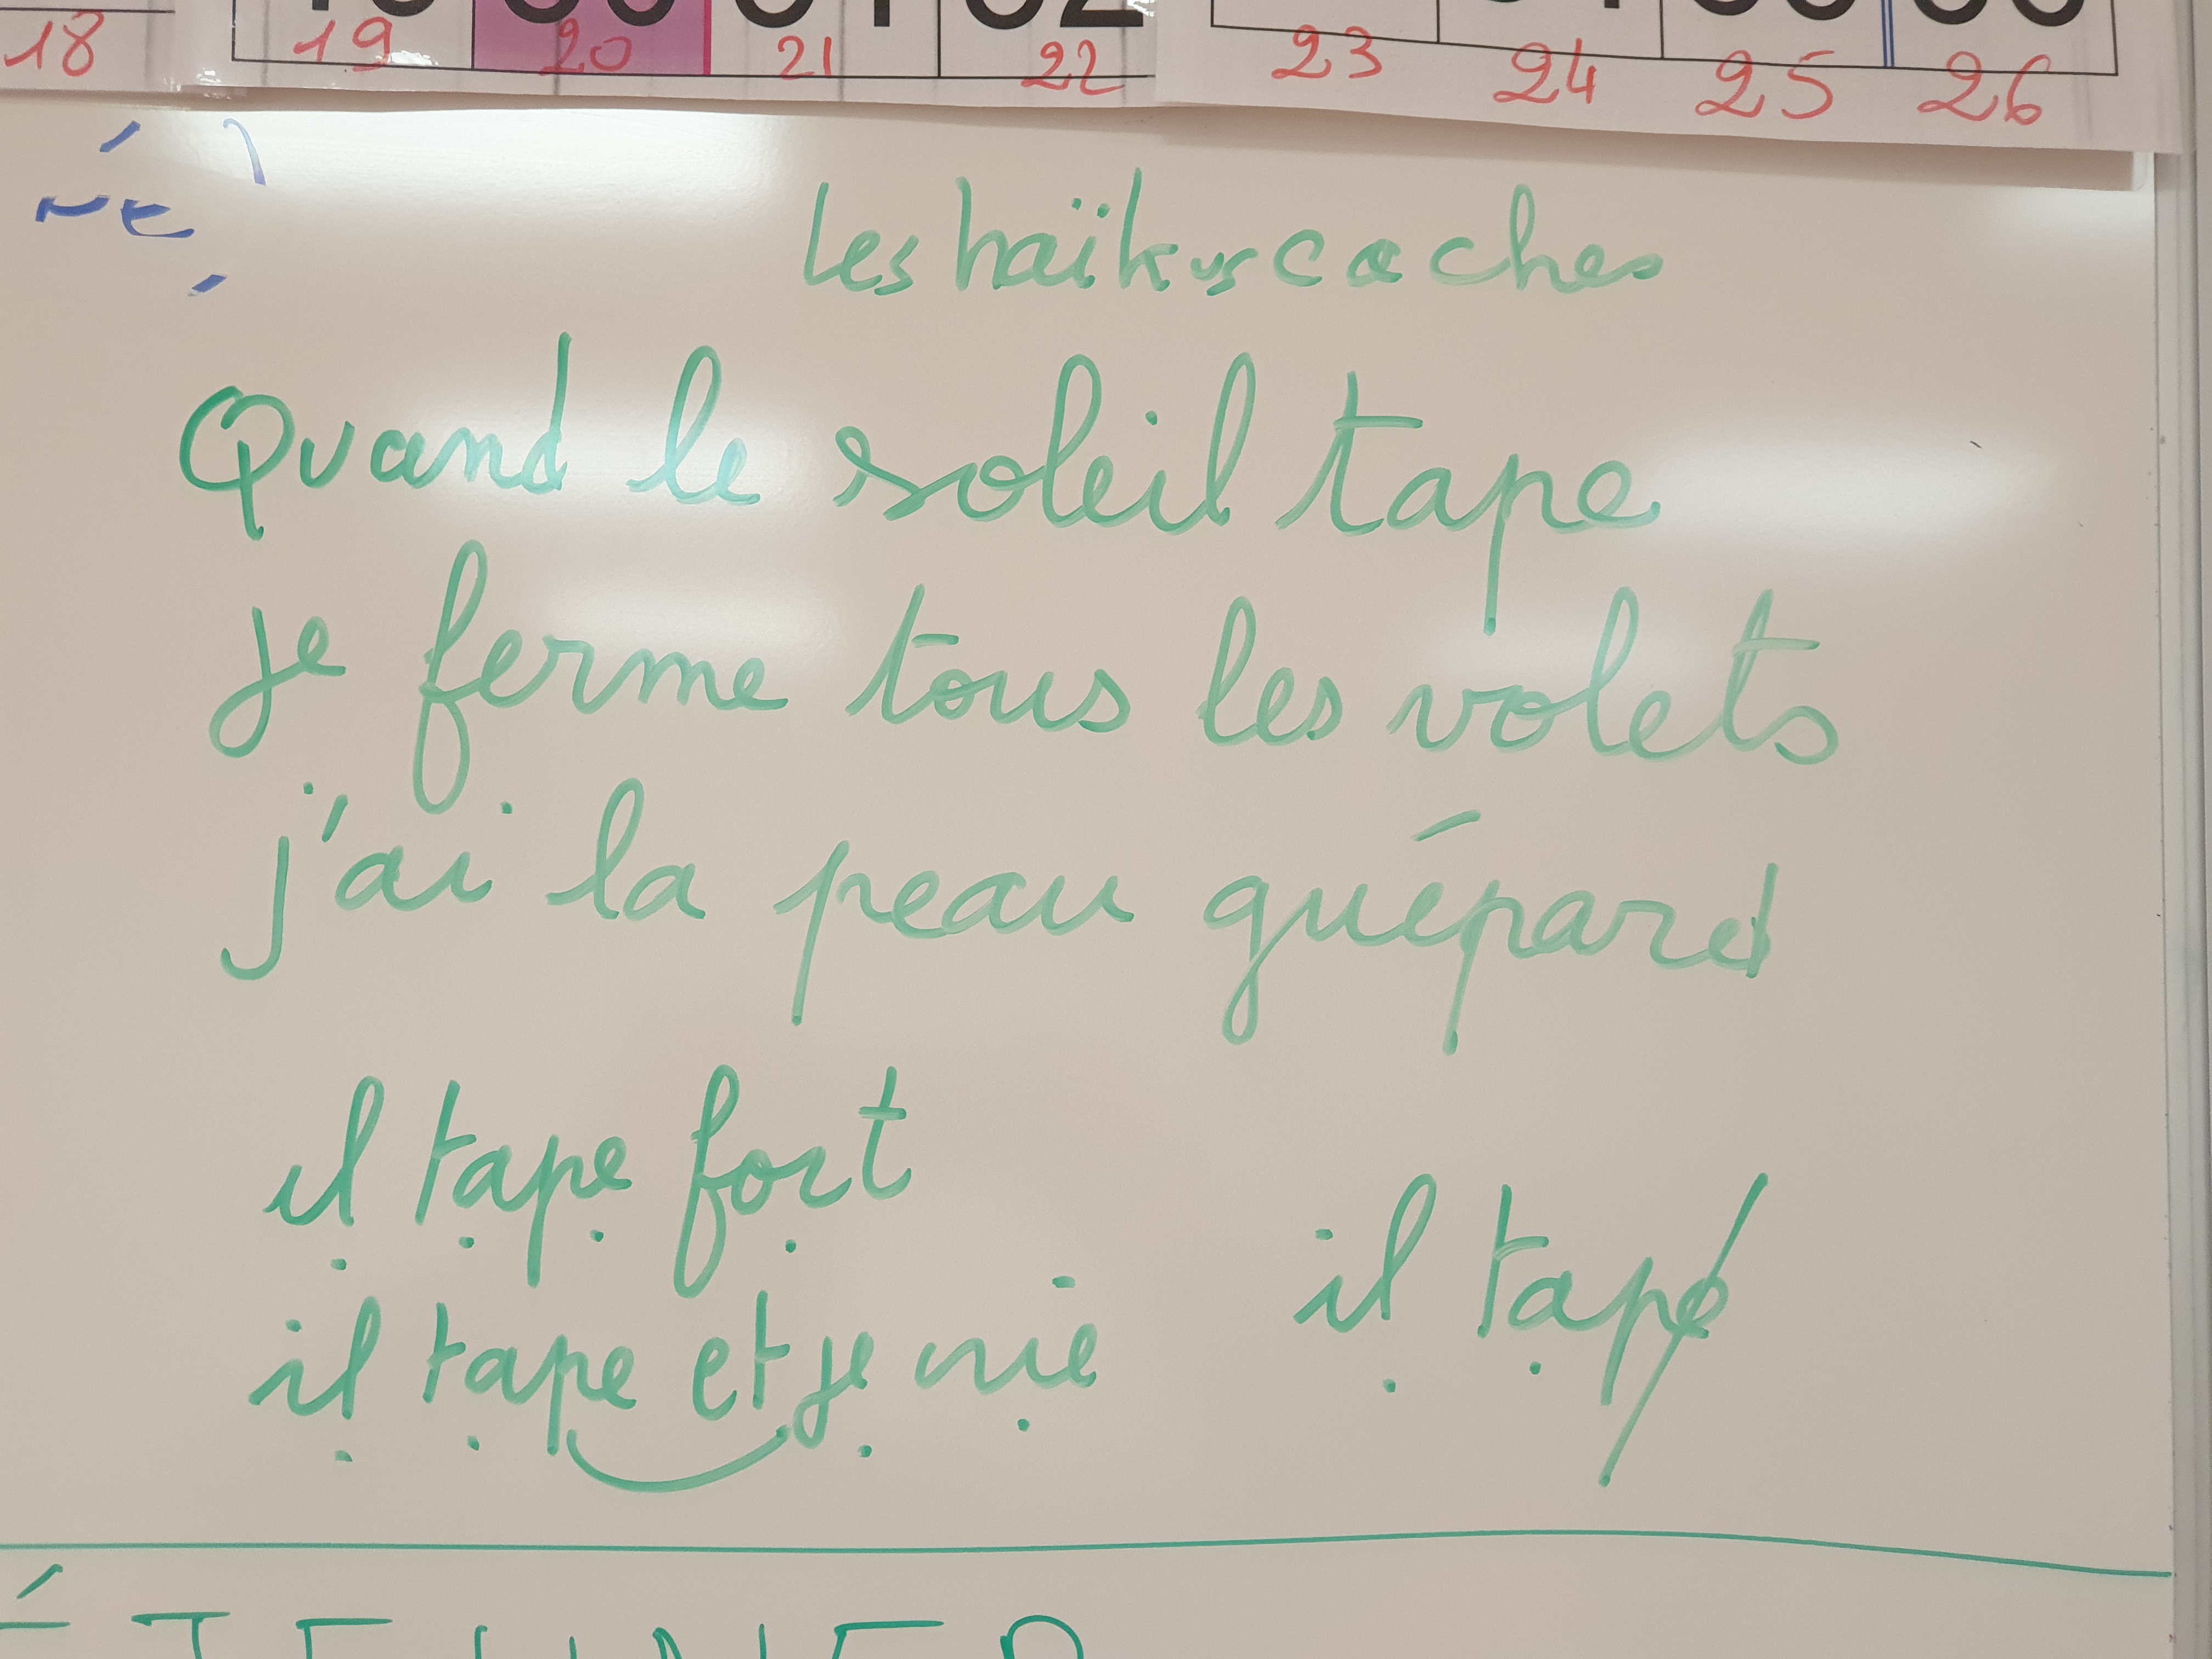 18 19 20 21 22 23 24 25 26
les haïkus coches
Quand le soleil tape
je ferme tous les volets
j'ai la peau guépard
il tape fort
il tape
il tape et je nie